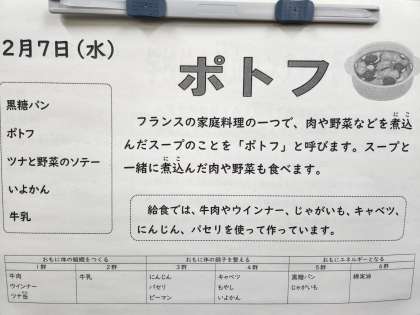 2月7日(水)
ポトフ
黒糖パン
ポトフ
ツナと野菜のソテー
いよかん
牛乳
フランスの家庭料理の一つで、肉や野菜などを煮込
んだスープのことを「ポトフ」と呼びます。スープと
一緒に煮込んだ肉や野菜も食べます。
給食では、牛肉やウインナー、じゃがいも、キャベツ、
にんじん、パセリを使って作っています。
おもに体の組織をつくる おもに体の調子を整える おもにエネルギーとなる
1群 2群 3群 4群 5群 6群
牛肉 牛乳 にんじん キャベツ 黒糖パン 綿実油
ウインナー パセリ もやし じゃがいも
ツナ缶 ピーマン いよかん